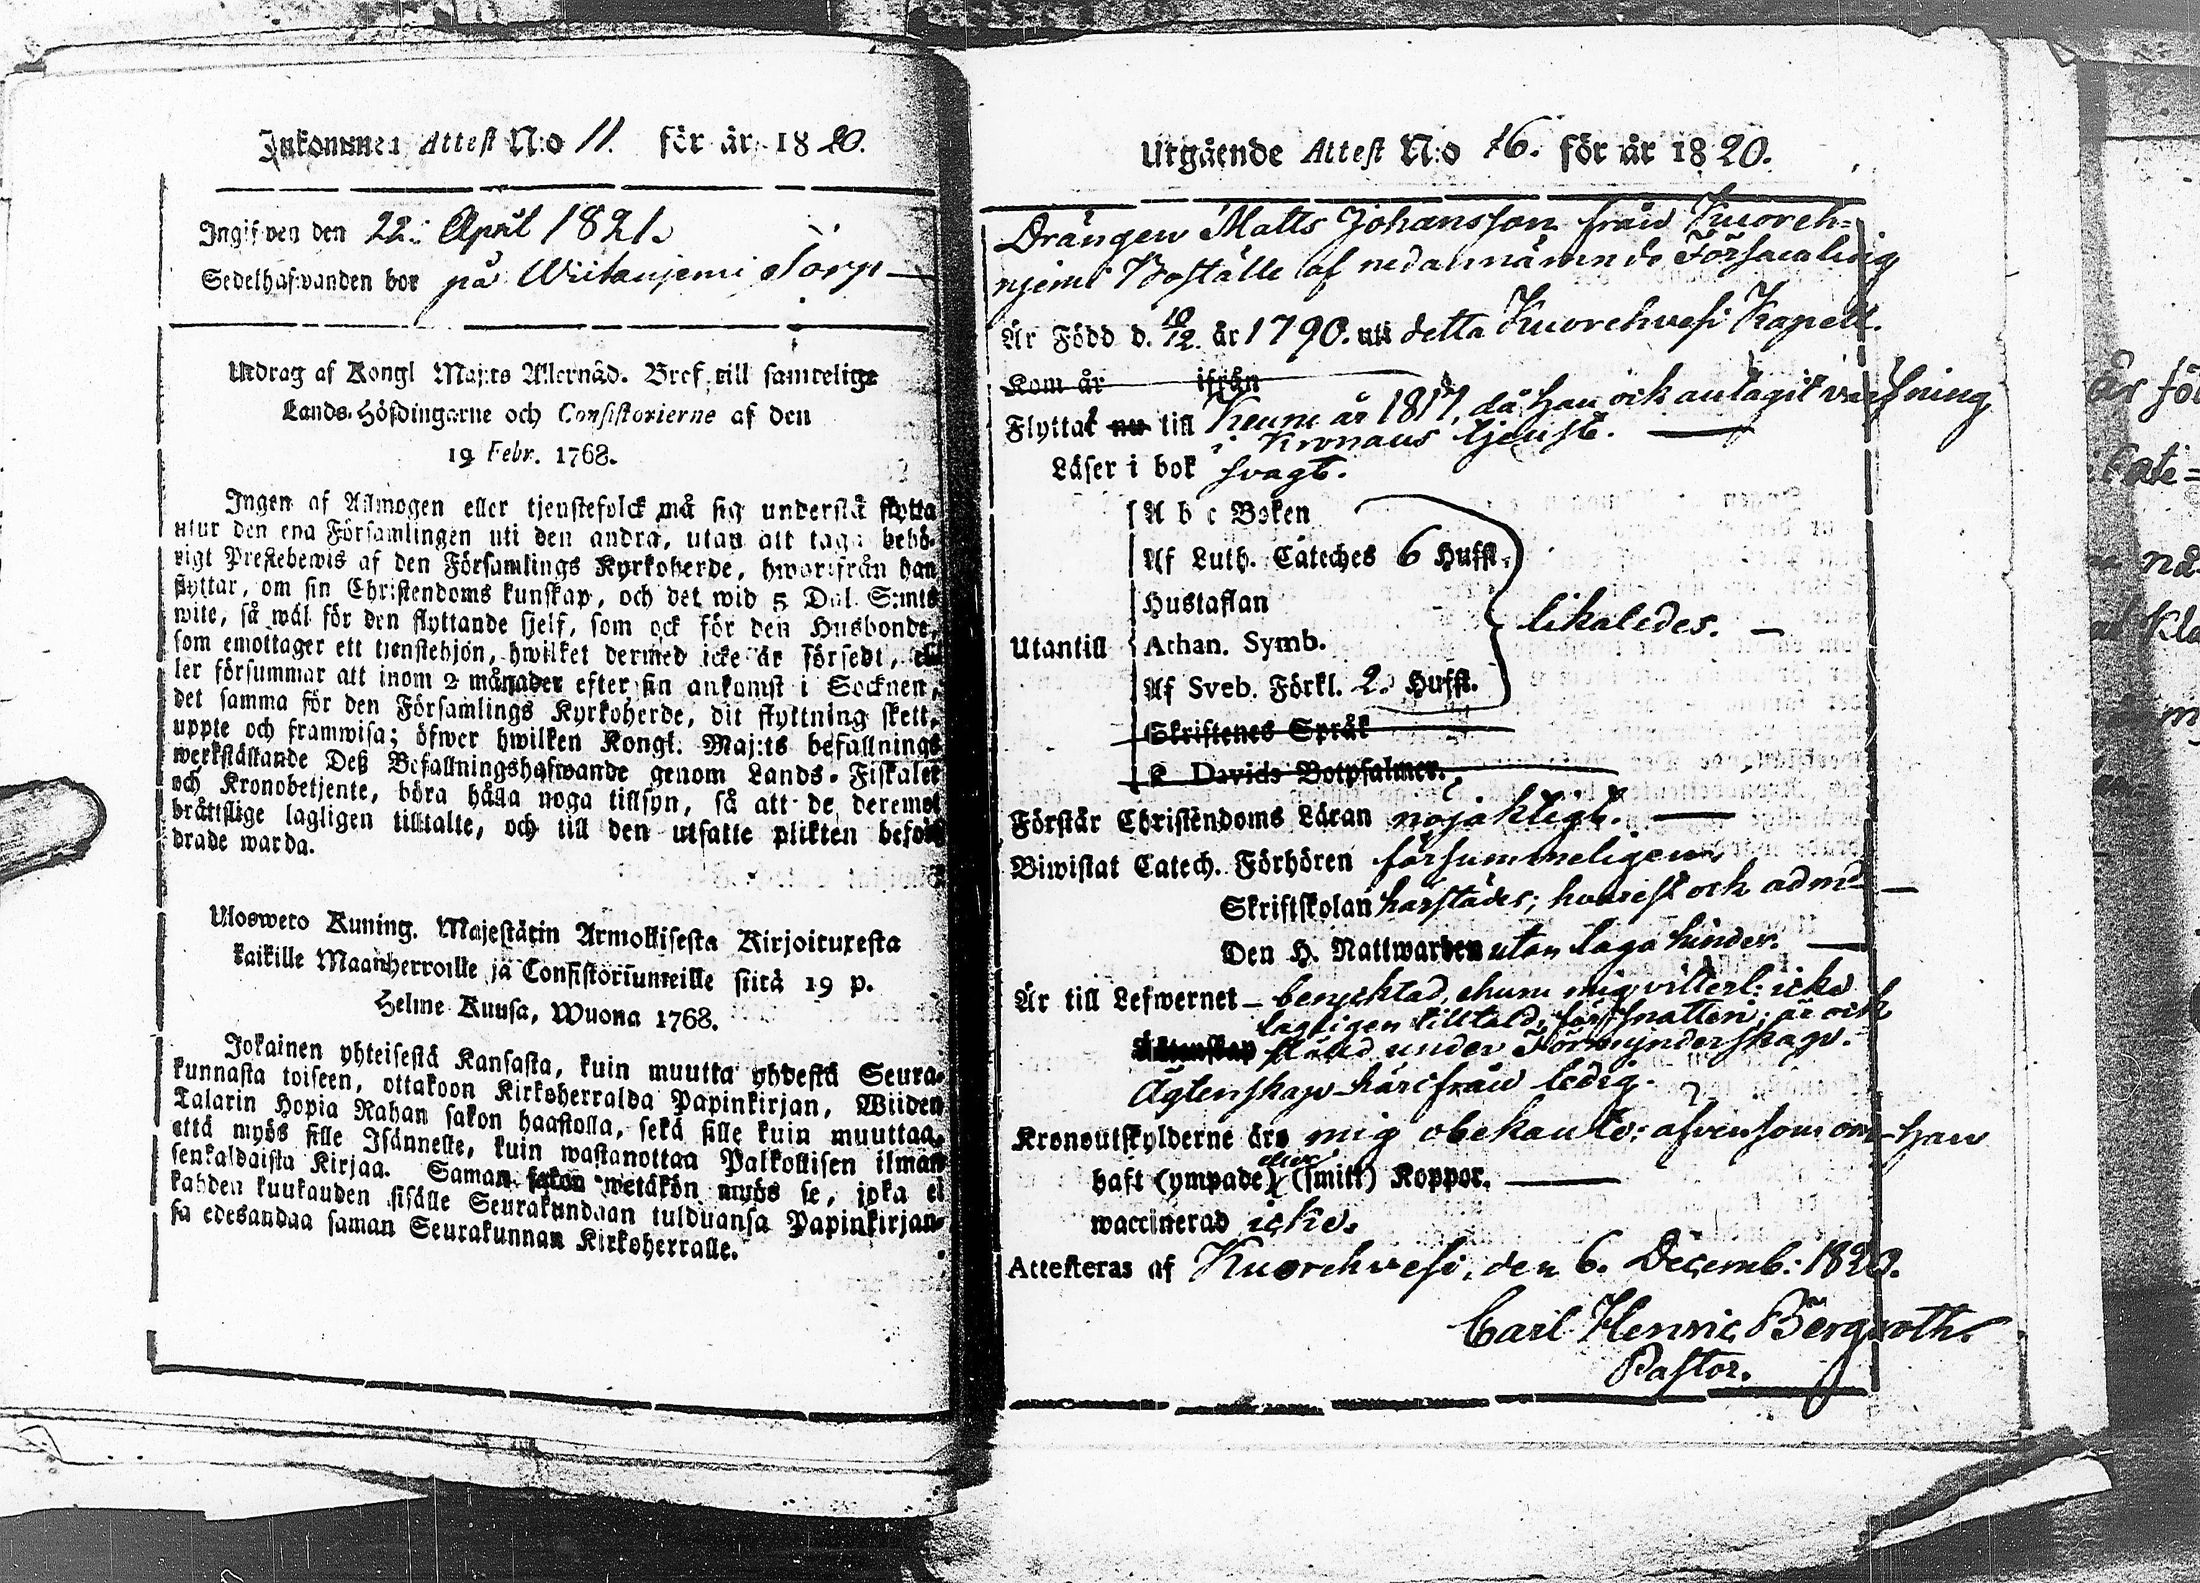 Inkommen Attest N:o 11. för år 1820.
Ingifwen den 22: April 1821.
Sedelhafwanden bor på Wiitaniemi Torp
Utdrag af Kongl Maj:ts Allernåd. Bref till samtelige
Lands-Höfdingarne och Consistorierne af den
19 Febr. 1768.
Ingen af Allmogen eller tjenstefolck må sig understå flytta
utur den ena Församlingen uti den andra, utan att taga behö-
rigt Prestebewis af den Församlings Kyrkoherde, hwarifrån han
flyttar, om sin Christendoms kunskap, och det wid 5 Dal. S:mts
wite, så wäl för den flyttande sjelf, som ock för den Husbonde,
som emottager ett tjenstehjon, hwilket dermed icke är försedt, el-
ler försummar att inom 2 månader efter sin ankomst i Socknen,
det samma för den Församlings Kyrkoherde, dit flyttning skett,
uppte och framwisa; öfwer hwilken Kongl. Maj:ts befallnings
werkställande Deß Befallningshafwande genom Lands-Fiskaler
och Kronobetjente, böra hålla noga tillsyn, så att de deremot
bråttslige lagligen tilltalte, och till den utsatte plikten befor-
drade warda.
Ulosweto Kuning. Majestätin Armollisesta Kirjoituxesta
kaikille Maanherroille ja Consistoriumeille siitä 19 p.
Helme Kuusa, Wuona 1768.
Jokainen yhteisestä Kansasta, kuin muutta yhdestä Seura-
kunnasta toiseen, ottakoon Kirkoherralda Papinkirjan, Wiiden
Talarin Hopia Rahan sakon haastolla, sekä sille kuin muuttaa,
että myös sille Isännelle, kuin wastanottaa Palkollisen ilman
senkaldaista Kirjaa. Saman sakon wetäkön myös se, joka ei
kahden kuukauden sisälle Seurakundaan tulduansa Papinkirjan-
sa edesandaa saman Seurakunnan Kirkoherralle.
Utgående Attest N:o 16. för år 1820.
Drängen Matts Johansson från Kuoreh-
njemi Boställe af nedannämnde Församling
Är Född d. 10/12. år 1790. uti detta Kuorehvesi Kapell.
Kom år ifrån
Flyttat nu till Keuru år 1817, då han och antagit värfning
i Kronans tjenst.
Läser i bok svagt.
A b c Boken
Af Luth. Cateches 6 Hufst.
Hustaflan
Utantill Athan. Symb. likaledes.
Af Sveb. Förkl. 2. Hufst.
Skriftenes Språk
& Davids Botpsalmer.
Förstår Christendoms Läran nöjaktigt.
Biwistat Catech. Förhören försummeligen
Skriftskolan härstädes; hvarest och adm.
Den H. Nattwarden utan laga hinder.
Är till Lefwernet berycktad, ehuru mig vitterl: icke
lagligen tilltald, för snatteri; är och
ställd under Förmynderskap.
Ägtenskap härifrån ledig.
Kronoutskylderne äro mig obekante; äfvensom om han
haft (ympade) eller (smitt) Koppor.
waccinerad icke.
Attesteras af Kuorehvesi, den 6. Decemb: 1820.
Carl Henric Bergroth
Pastor.